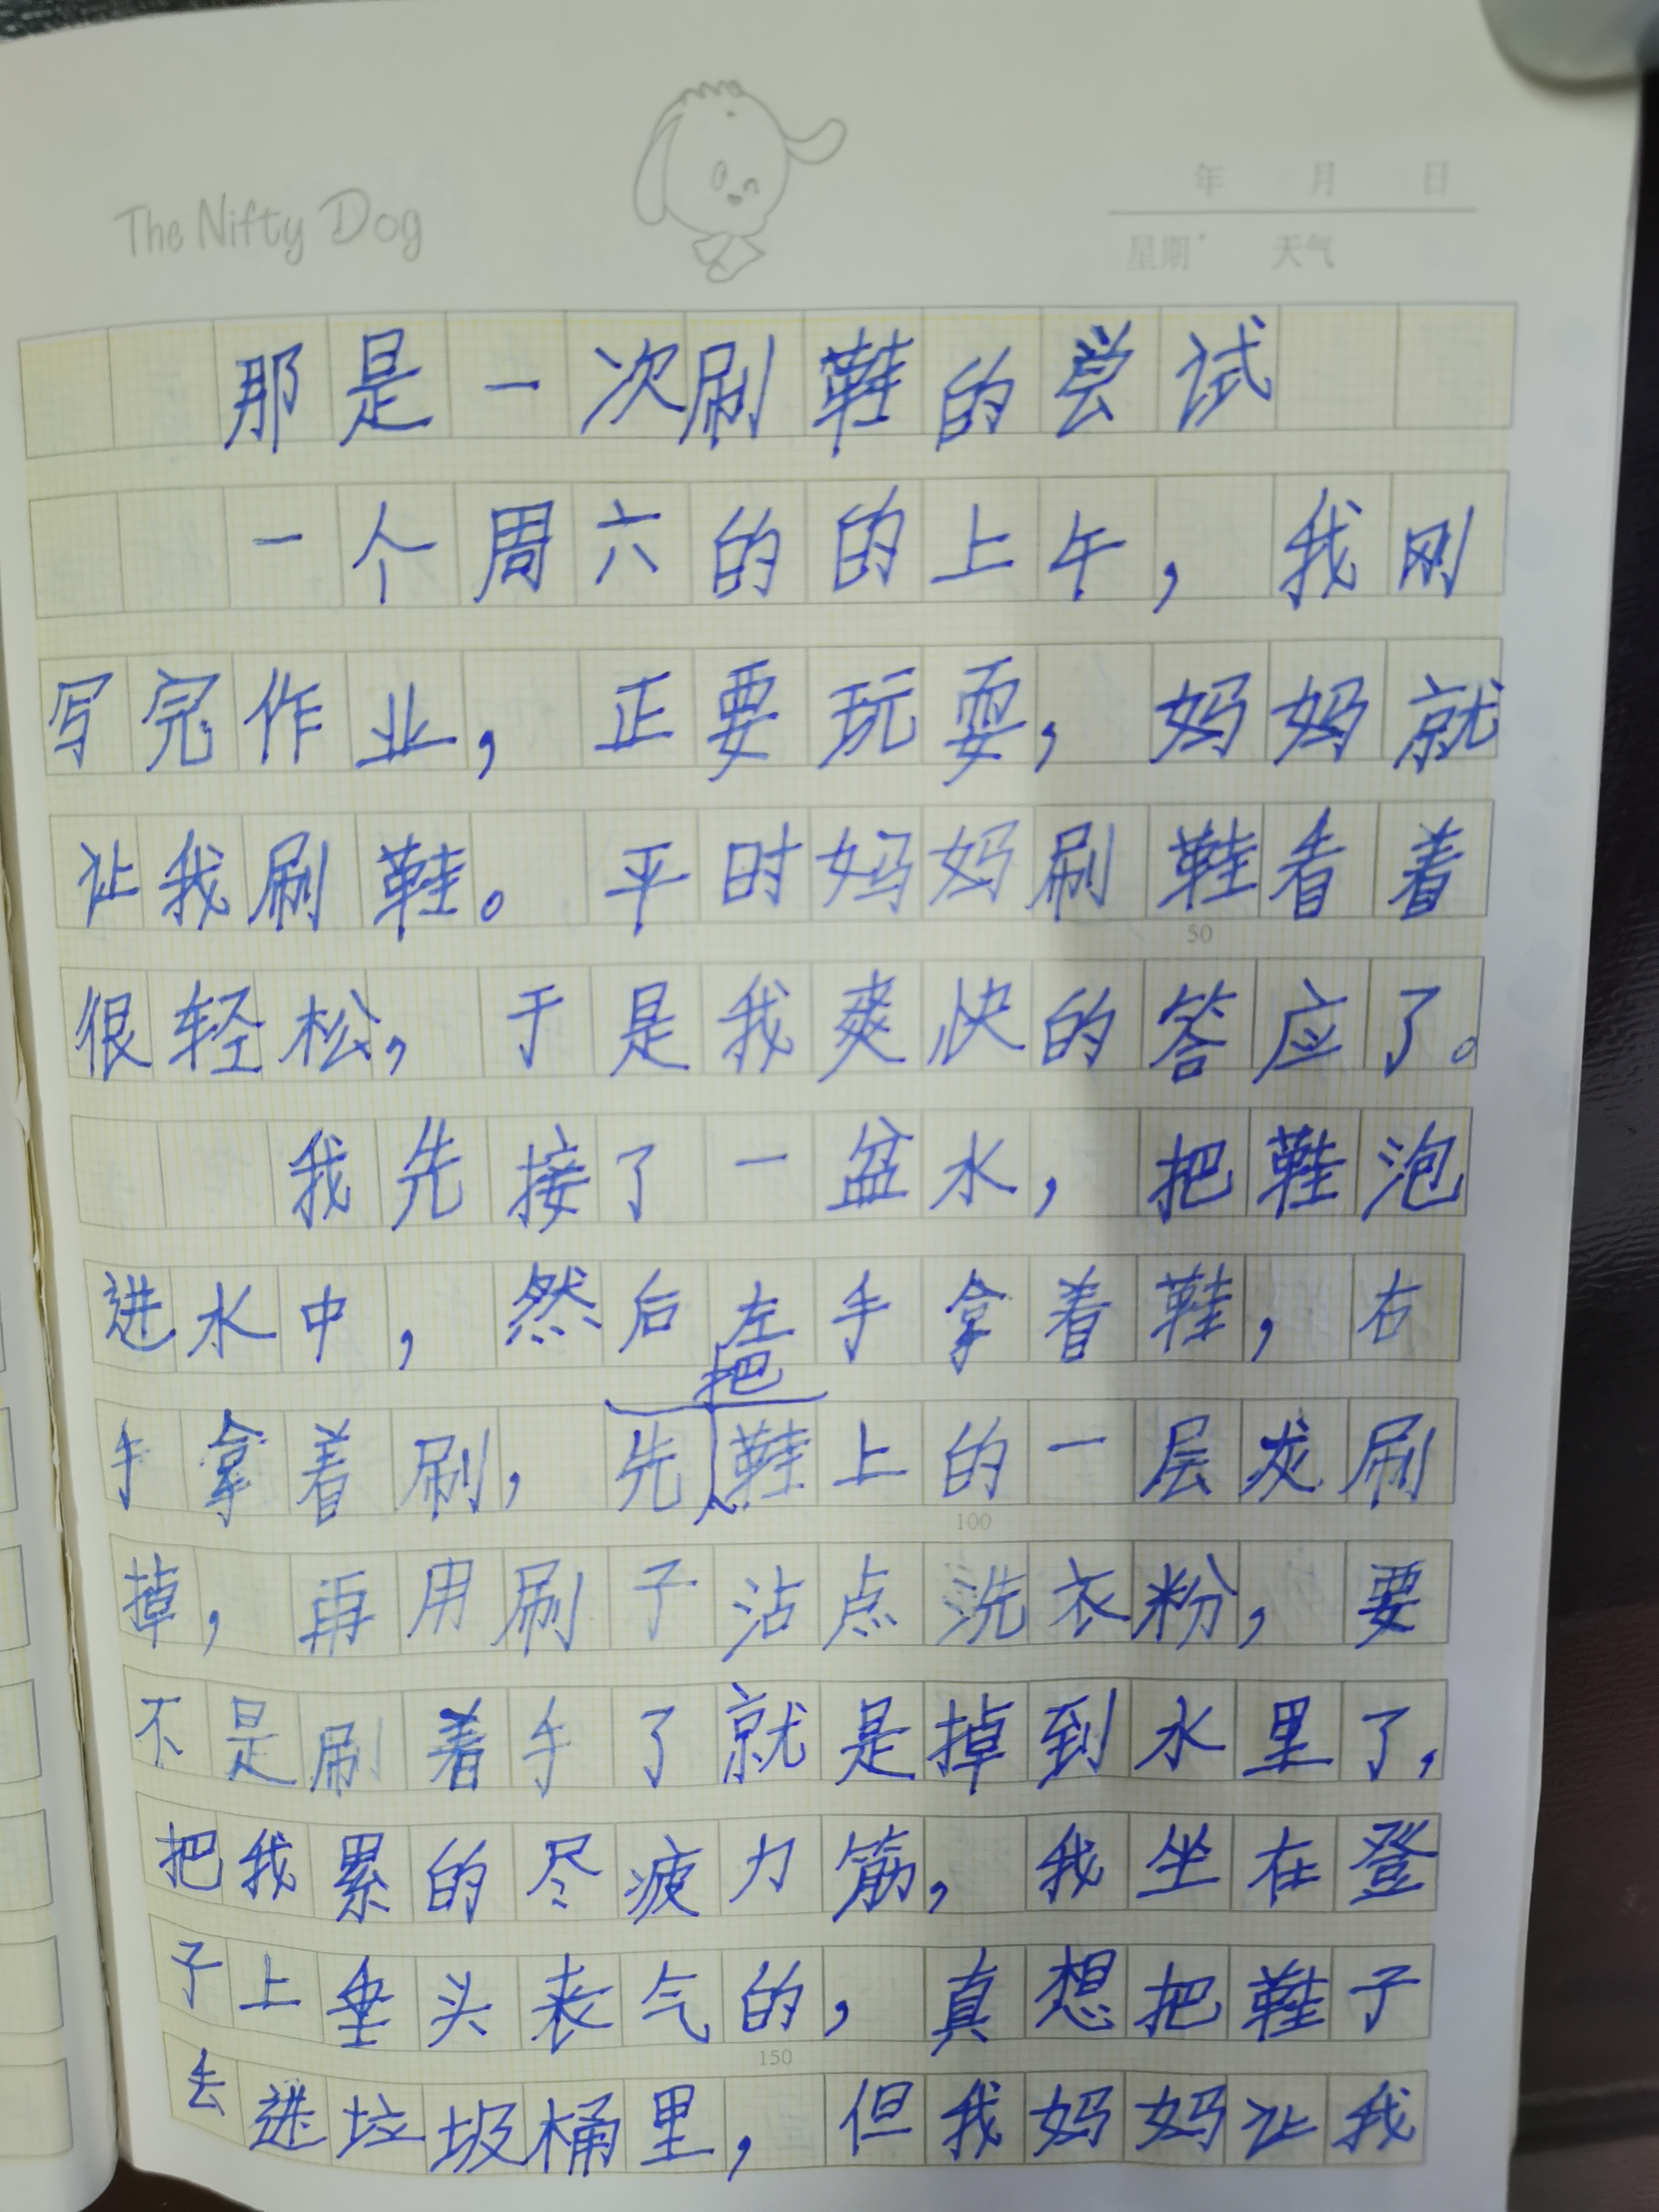 The Nifty Dog
年 月 日
星期 天气
那是一次刷鞋的尝试
一个周六的的上午，我刚
写完作业，正要玩耍，妈妈就
让我刷鞋。平时妈妈刷鞋看着
50
很轻松，于是我爽快的答应了。
我先接了一盆水，把鞋泡
进水中，然后左手拿着鞋，右
手拿着刷，先把鞋上的一层灰刷
100
掉，再用刷子沾点洗衣粉，要
不是刷着手了就是掉到水里了，
把我累的尽疲力筋，我坐在登
子上垂头丧气的，真想把鞋子
150
丢进垃圾桶里，但我妈妈让我